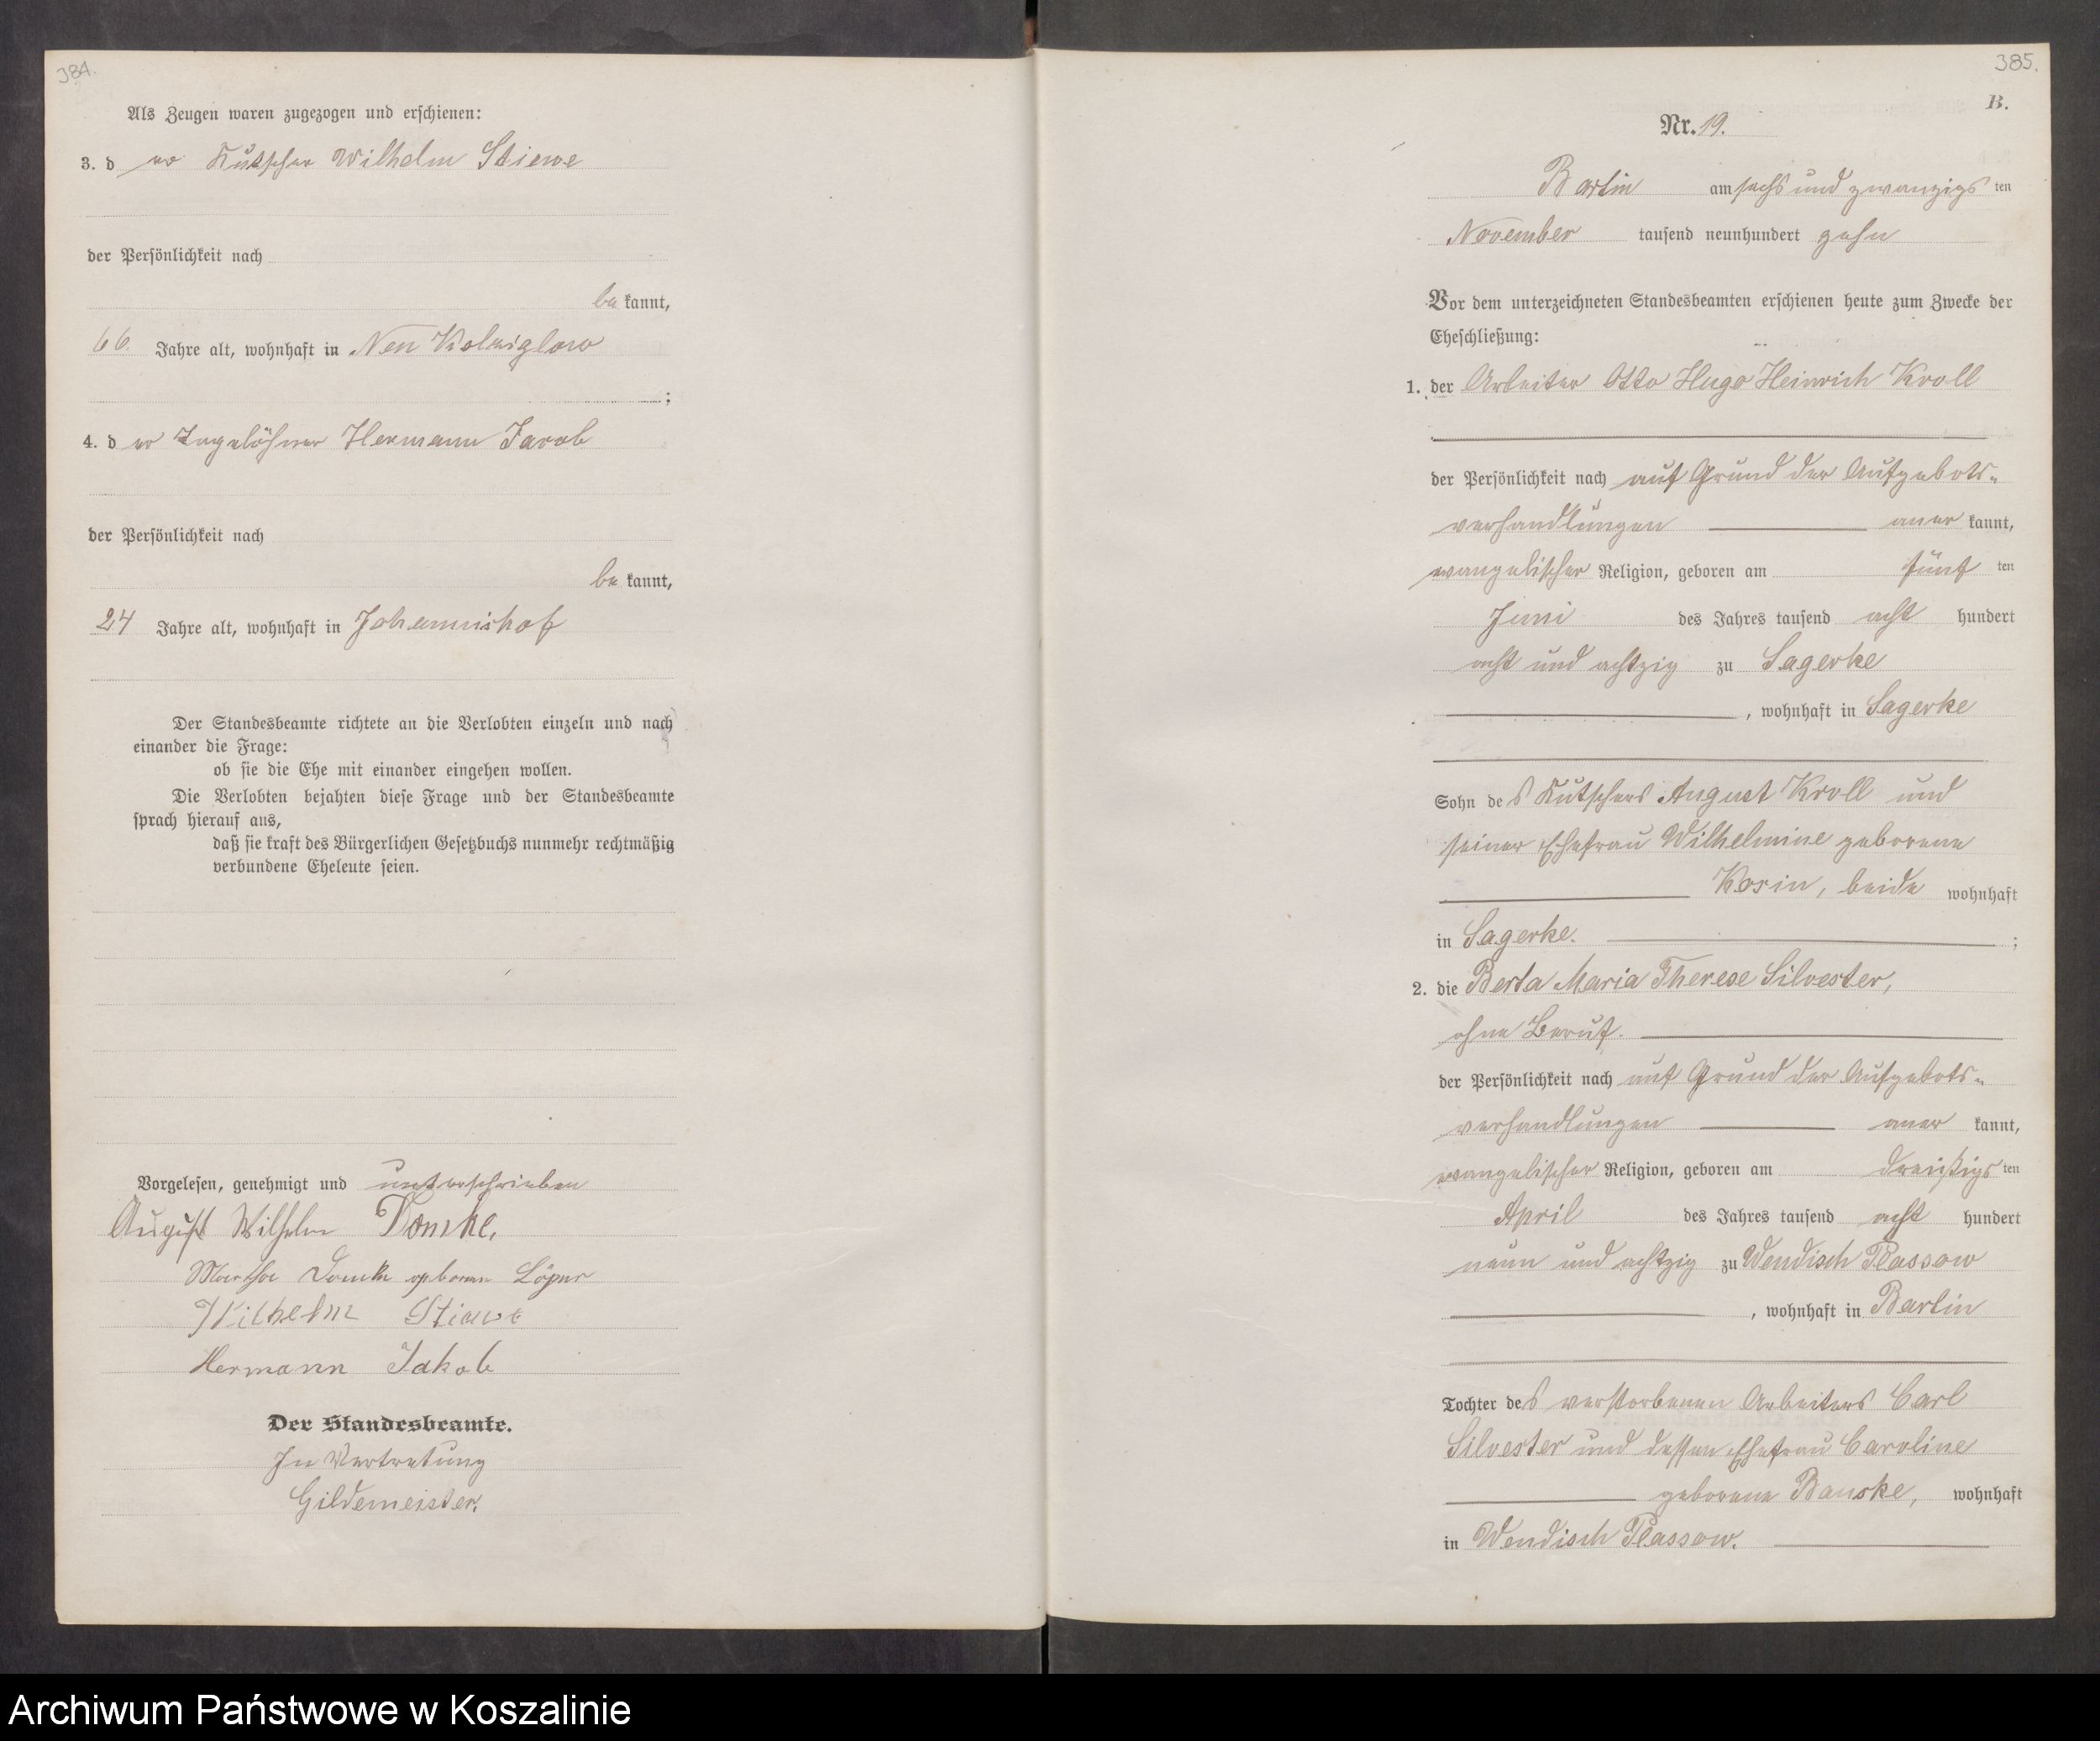 384.
Als Zeugen waren zugezogen und erschienen:
3. d er Kutscher Wilhelm Stiewe
der Persönlichkeit nach
be kannt,
66. Jahre alt, wohnhaft in Neu Kolziglow
;
4. d er Tagelöhner Hermann Jacob
der Persönlichkeit nach
be kannt,
24 Jahre alt, wohnhaft in Johannishof
Der Standesbeamte richtete an die Verlobten einzeln und nach
einander die Frage:
ob sie die Ehe mit einander eingehen wollen.
Die Verlobten bejahten diese Frage und der Standesbeamte
sprach hierauf aus,
daß sie kraft des Bürgerlichen Gesetzbuchs nunmehr rechtmäßig
verbundene Eheleute seien.
Vorgelesen, genehmigt und unterschrieben
August Wilhelm Domke,
Martha Domke geborene
Wilhelm Stiewe
Hermann Jakob
Der Standesbeamte.
In Vertretung
Gildemeister.
385.
B.
Nr. 19.
Bartin am sechs und zwanzigs ten
November tausend neunhundert zehn
Vor dem unterzeichneten Standesbeamten erschienen heute zum Zwecke der
Eheschließung:
1. der Arbeiter Otto Hugo Heinrich Kroll
der Persönlichkeit nach auf Grund der Aufgebots-
verhandlungen aner kannt,
evangelischer Religion, geboren am fünf ten
Juni des Jahres tausend acht hundert
acht und achtzig zu Sagerke
, wohnhaft in Sagerke
Sohn de s Kutschers August Kroll und
seiner Ehefrau Wilhelmine geborene
Kosin, beide wohnhaft
in Sagerke. ;
2. die Berta Maria Therese Silvester,
ohne Beruf.
der Persönlichkeit nach auf Grund der Aufgebots-
verhandlungen aner kannt,
evangelischer Religion, geboren am dreißigs ten
April des Jahres tausend acht hundert
neun und achtzig zu Wendisch Plassow
, wohnhaft in Bartin
Tochter de s verstorbenen Arbeiters Carl
Silvester und dessen Ehefrau Caroline
geborene Banske, wohnhaft
in Wendisch Plassow.
Archiwum Państwowe w Koszalinie